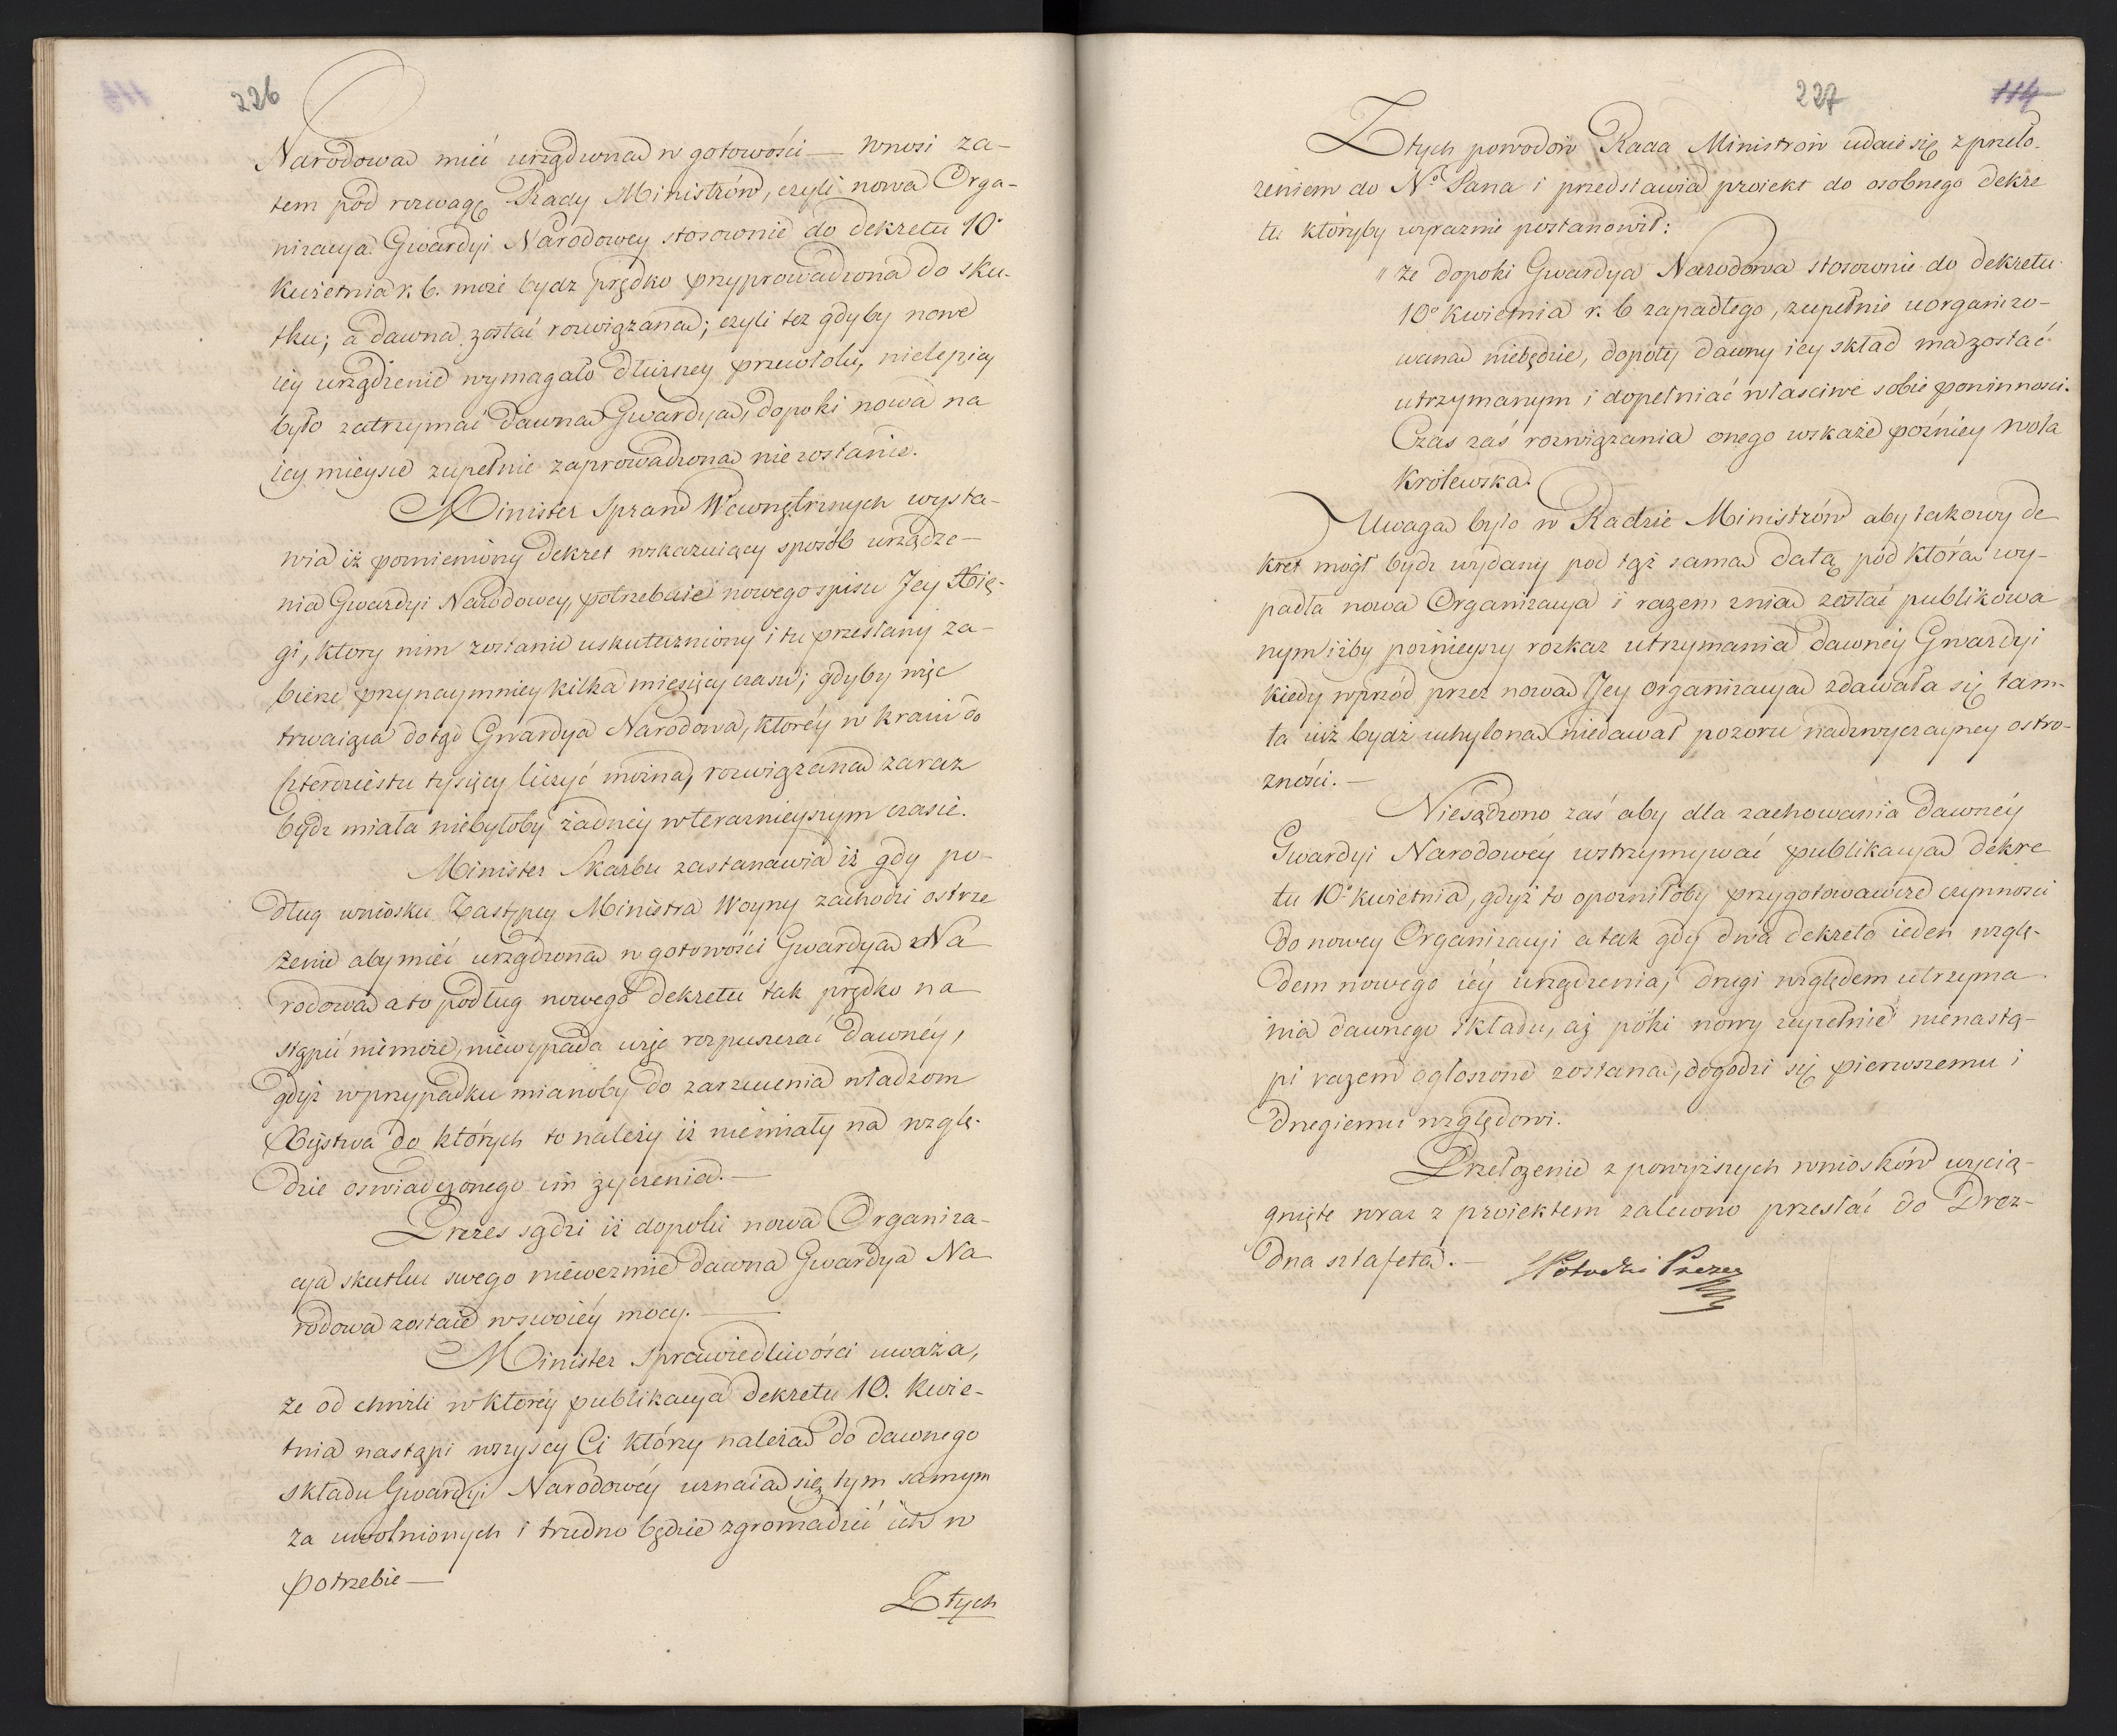 226
Narodową mieć urządzoną w gotowości — wnosi za-
tem pod rozwagę Rady Ministrów, czyli nowa Orga-
nizacya Gwardyi Narodowey stosownie do dekretu 10º
kwietnia r. b. może bydz prędko przyprowadzona do sku-
tku; a dawna zostać rozwiązaną; czyli tez gdyby nowe
iey urządzenie wymagało dłuższey przewłoki, nielepiey
było zatrzymać dawną Gwardyą, dopoki nowa na
iey mieysce zupełnie zaprowadzoną nie zostanie.
Minister Spraw Wewnętrznych wysta-
wia iż pomieniony dekret wskazuiący sposób urządze-
nia Gwardyi Narodowey, potrzebuie nowego spisu Jey Xię-
gi, ktory nim zostanie uskuteczniony i tu przesłany za-
bierze przynaymniey kilka miesięcy czasu; gdyby więc
trwaiąca dotąd Gwardya Narodowa, któréy w kraiu do
czterdziestu tysięcy liczyć można, rozwiązaną zaraz
bydz miała niebyłoby żadnéy w terazniéyszym czasie.
Minister Skarbu zastanawia iż gdy po-
dług wniosku Zastępcy Ministra Woyny zachodzi ostrze
żenie aby mieć urządzoną w gotowości Gwardyą Na
rodową a to podług nowego dekretu tak prędko na
stąpić niemoże, niewypada więc rozpuszczać dawnéy,
gdyż w przypadku mianoby do zarzucenia władzom
Xięstwa do których to należy iż niemiały na wzglę-
dzie oswiadczonego im życzenia. —
Prezes sądzi iż dopoki nowa Organiza-
cya skutku swego niewezmie dawna Gwardya Na
rodowa zostaie w swoiéy mocy. —
Minister Sprawiedliwości uważa,
że od chwili w któréy publikacya dekretu 10. Kwie-
tnia nastąpi wszyscy Ci którzy należą do dawnego
składu Gwardyi Narodowéy uznaią się tym samym
za uwolnionych i trudno będzie zgromadzić ich w
potrzebie —
Z tych
227
114
Z tych powodów Rada Ministrów udaie się z przeło-
żeniem do Nº Pana i przedstawia proiekt do osobnego dekre
tu któryby wyraznie postanowił:
" że dopoki Gwardya Narodowa stosownie do dekretu
10º kwietnia r. b zapadłego, zupełnie uorganizo-
waną niebędzie, dopoty dawny iey skład ma zostać
utrzymanym i dopełniać właściwe sobie powinnosci.
Czas zaś rozwiązania onego wskaże pożniey wola
Królewska.
Uwagą było w Radzie Ministrów aby takowy de
kret mógł bydz wydany pod tąż samą datą pod którą wy-
padła nowa Organizacya i razem z nią zostać publikowa
nym iżby pożnieyszy rozkaz utrzymania dawnéy Gwardyi
kiedy wprzód przez nową Jey organizacyą zdawała się tam-
ta iuż bydż uchyloną niedawał pozoru nadzwyczayney ostro-
zności. —
Niesądzono zaś aby dla zachowania dawnéy
Gwardyi Narodowéy wstrzymywać publikacyą dekre
tu 10º kwietnia, gdyż to opozniłoby przygotowawcze czynnosci
do nowey Organizacyi a tak gdy dwa dekreta ieden wzglę-
dem nowego iéy urządzenia, drugi względem utrzyma
nia dawnego składu, aż póki nowy zupełnie nienastą-
pi razem ogłoszone zostaną, dogodzi się pierwszemu i
drugiemu względowi.
Przełożenie z powyższych wniosków wycią-
gnięte wraz z proiektem zalecono przesłać do Drez-
dna sztafetą. —
SPotocki Prezes